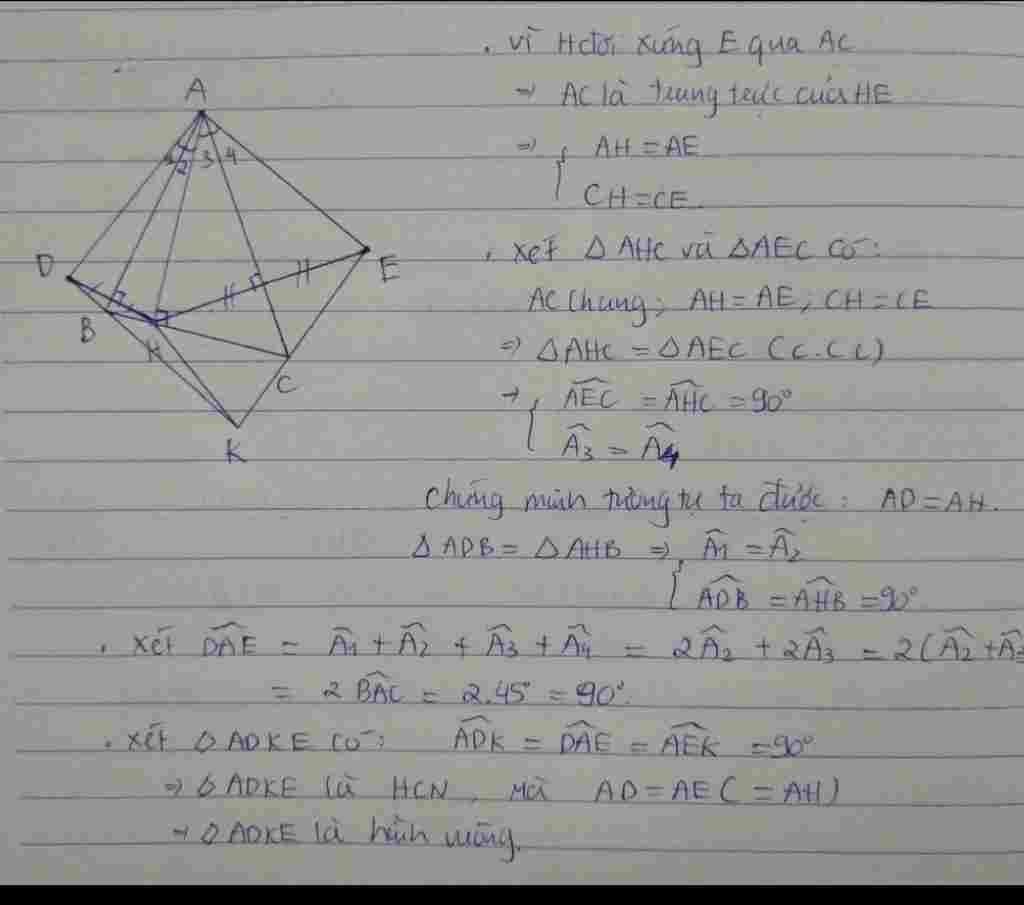 . vì H đối xứng E qua AC
⇒ AC là trung trực của HE
⇒ { AH = AE
CH = CE
. Xét Δ AHC và Δ AEC có:
AC chung, AH = AE, CH = CE
⇒ Δ AHC = Δ AEC (c.c.c)
→ { \widehat{AEC} = \widehat{AHC} = 90°
\widehat{A_3} = \widehat{A_4}
Chứng minh tương tự ta được: AD = AH.
Δ ADB = Δ AHB ⇒ { \widehat{A_1} = \widehat{A_2}
\widehat{ADB} = \widehat{AHB} = 90°
. Xét \widehat{DAE} = \widehat{A_1} + \widehat{A_2} + \widehat{A_3} + \widehat{A_4} = 2\widehat{A_2} + 2\widehat{A_3} = 2(\widehat{A_2} + \widehat{A_3}
= 2 \widehat{BAC} = 2.45° = 90°.
. Xét ◊ ADKE có: \widehat{ADK} = \widehat{DAE} = \widehat{AEK} = 90°
⇒ ◊ ADKE là HCN, Mà AD = AE ( = AH)
→ ◊ ADKE là hình vuông.
A
1 2 3 4
D
E
H
H
B
H
C
K